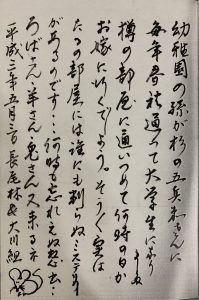 幼稚園の孫が杉の五兵衛さんに
毎年春秋通って大学生になりました
樽の部屋に通いつめて何時の日か
お嫁に行くでしょう。そうそう実は
たるの部屋には誰にも判らぬミステリー
があるのです…何時も忘れえぬ想い出…
ろばさん、羊さん、兎さん又来るネ
平成三年五月三日 長尾林&大川組